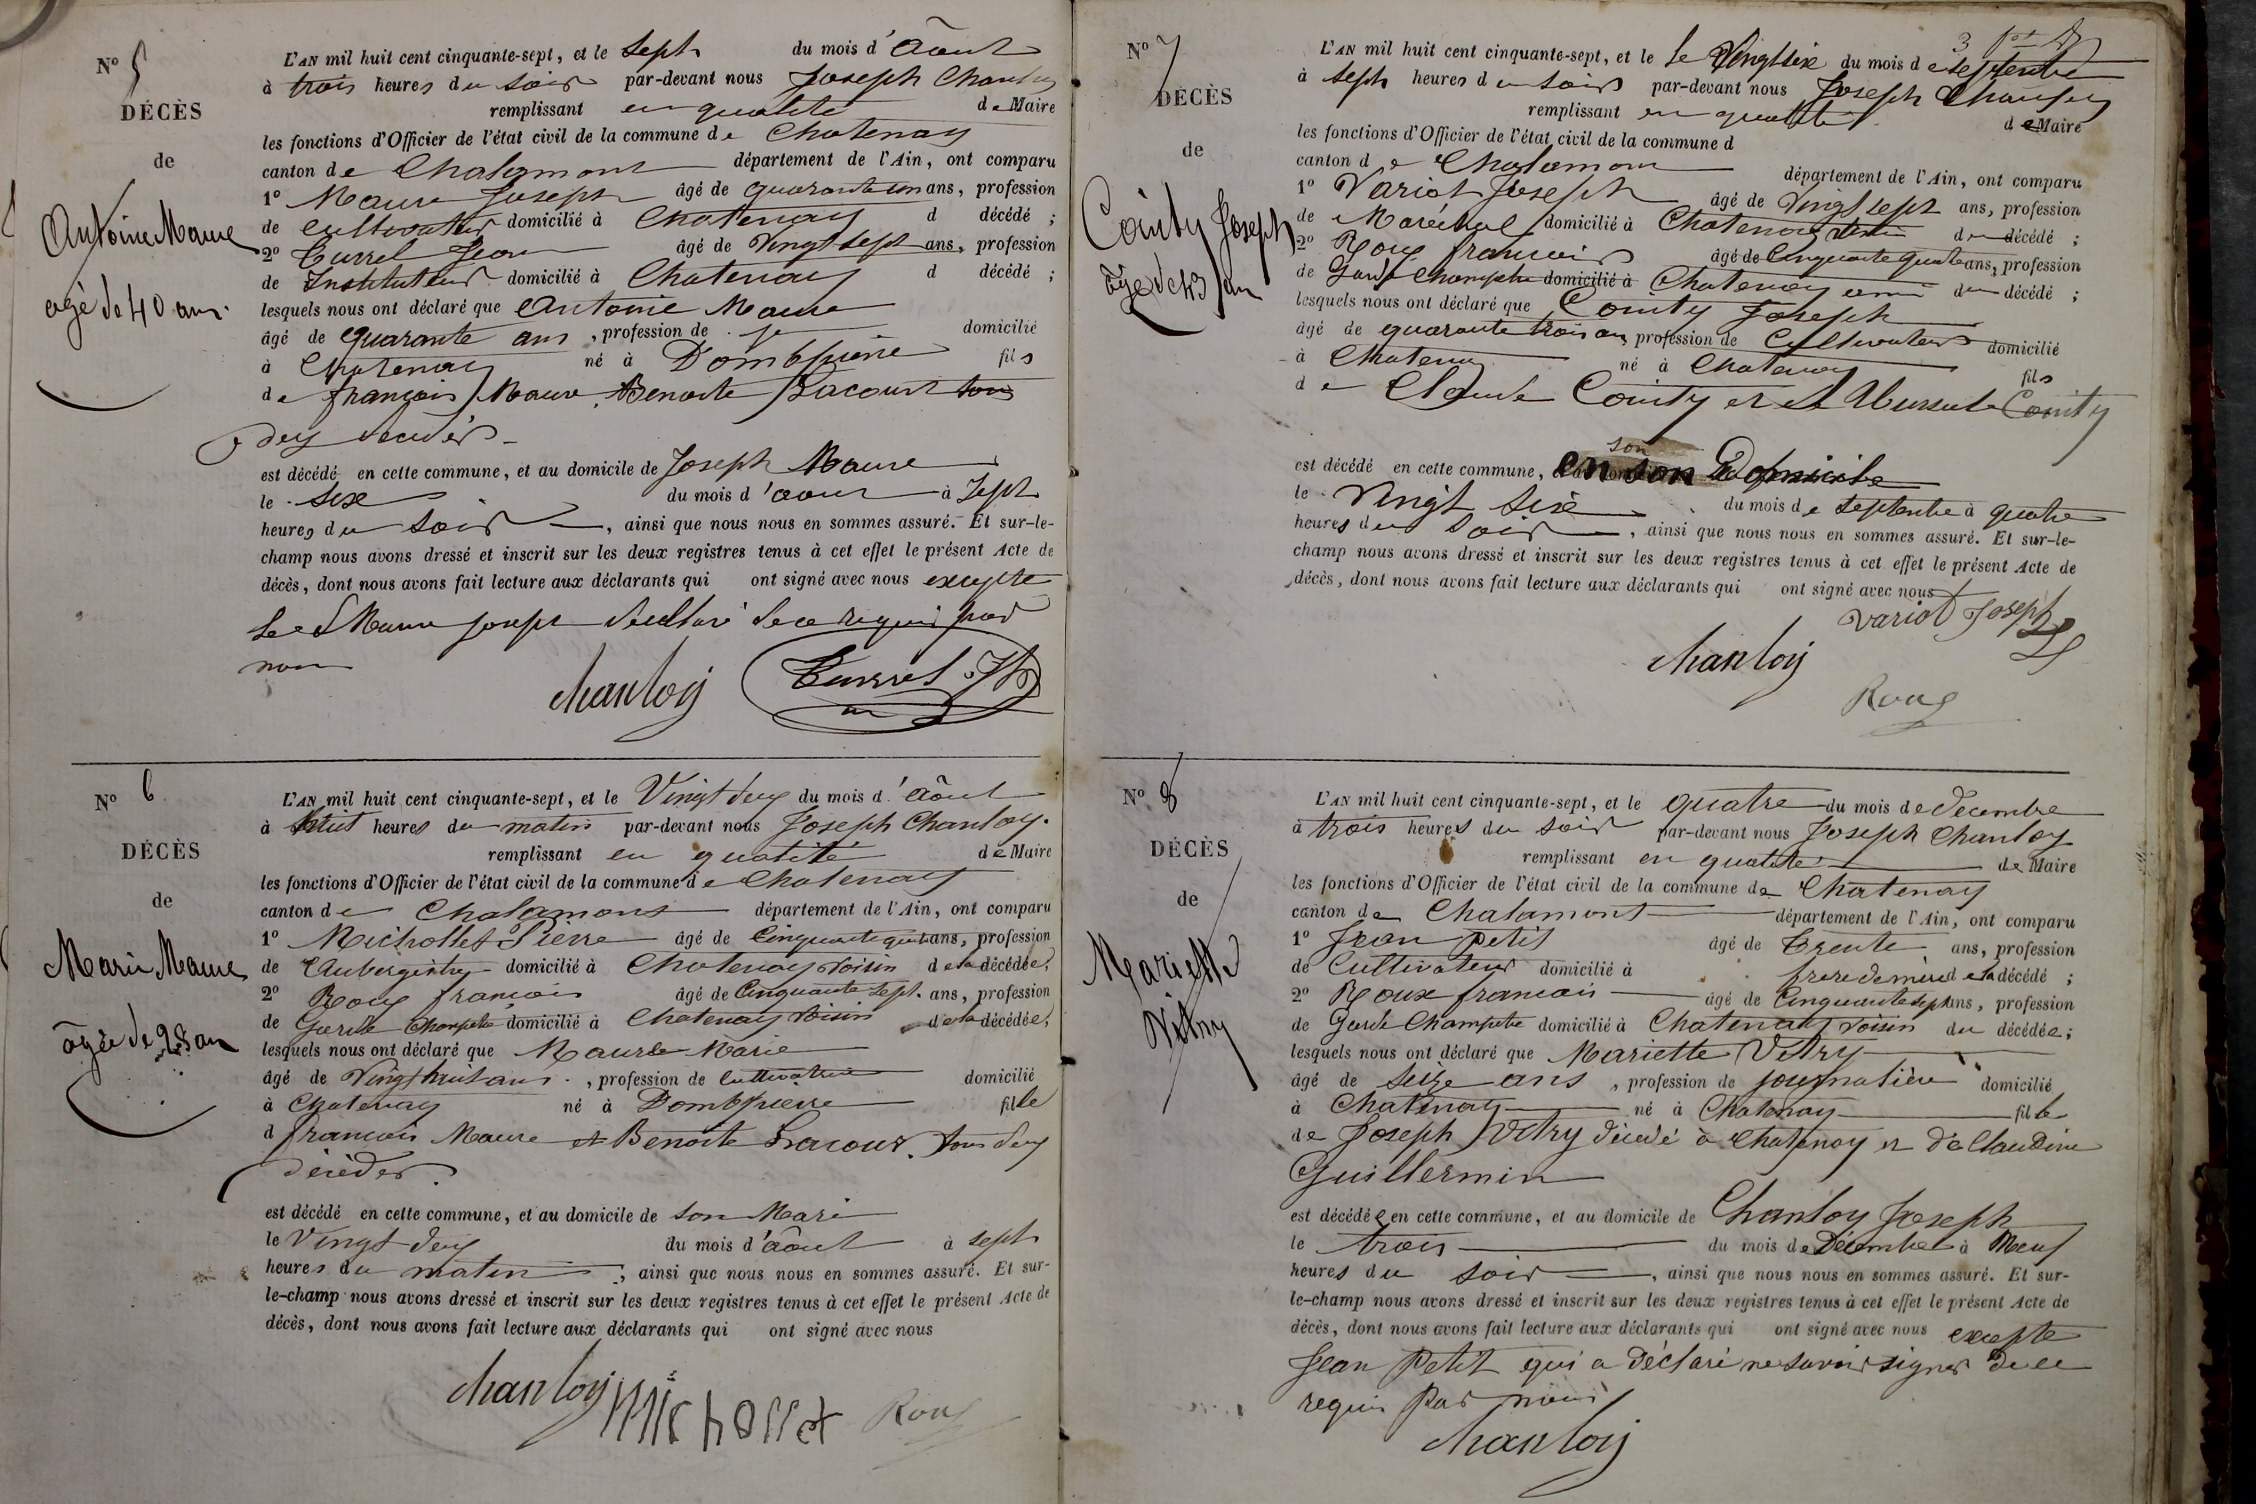 N° 5
DÉCÈS
de
Antoine Maure
agé de 40 ans
L'AN mil huit cent cinquante-sept, et le sept du mois d'Août
à trois heures du soir par-devant nous Joseph Chanloy
remplissant en qualité de Maire
les fonctions d'Officier de l'état civil de la commune de Chatenay
canton de Chalamont département de l'Ain, ont comparu
1° Maure Joseph âgé de quarante un ans, profession
de cultivateur domicilié à Chatenay d décédé ;
2° Curvel Jean âgé de Vingt sept ans, profession
de Instituteur domicilié à Chatenay d décédé ;
lesquels nous ont déclaré que Antoine Maure
âgé de quarante ans, profession de domicilié
à Chatenay né à Dompierre fils
de françois Maure Benoite Lacour tous
deux décédés
est décédé en cette commune, et au domicile de Joseph Maure
le six du mois d'aout à Sept
heures du soir, ainsi que nous nous en sommes assuré. Et sur-le-
champ nous avons dressé et inscrit sur les deux registres tenus à cet effet le présent Acte de
décès, dont nous avons fait lecture aux déclarants qui ont signé avec nous excepté
le S Maure joseph de ce requis par
nous
Chanloy
N° 6
DÉCÈS
de
Marie Maure
âgée de 28 an
L'AN mil huit cent cinquante-sept, et le Vingt deux du mois d'Août
à huit heures du matin par-devant nous Joseph Chanloy.
remplissant en qualité de Maire
les fonctions d'Officier de l'état civil de la commune de Chatenay
canton de Chalamont département de l'Ain, ont comparu
1° Michollet Pierre âgé de Cinquante ans, profession
de Aubergiste domicilié à Chatenay voisin de la décédée,
2° Roux francois âgé de Cinquante sept. ans, profession
de Garde Champetre domicilié à Chatenay voisin de la décédée,
lesquels nous ont déclaré que Maure Marie
âgé de Vingt huit ans, profession de Cultivatrice domicilié
à Chatenay né à Dompierre fille
d francois Maure et Benoite Lacour. tous deux
décédés.
est décédé en cette commune, et au domicile de son Mari
le Vingt deux du mois d'août à sept
heures du matin, ainsi que nous nous en sommes assuré. Et sur-
le-champ nous avons dressé et inscrit sur les deux registres tenus à cet effet le présent Acte de
décès, dont nous avons fait lecture aux déclarants qui ont signé avec nous
Chanloy Michollet Roux
N° 7
DÉCÈS
de
Cointy Joseph
âgé de 43 an
L'AN mil huit cent cinquante-sept, et le le Vingt six du mois de septembre
à sept heures du soir par-devant nous Joseph Chanloy
remplissant en qualité de Maire
les fonctions d'Officier de l'état civil de la commune d
canton de Chalamon département de l'Ain, ont comparu
1° Variot Joseph âgé de Vingt sept ans, profession
de Maréchal domicilié à Chatenay voisin du décédé ;
2° Roux francois âgé de Cinquante quatre ans, profession
de Garde Champetre domicilié à Chatenay ami du décédé ;
lesquels nous ont déclaré que Cointy Joseph
âgé de quarante trois an, profession de Cultivateur domicilié
à Chatenay né à Chatenay fils
de Claude Cointy et de Cointy
son
est décédé en cette commune, en son Domicile
le Vingt six du mois de septembre à quatre
heures du soir, ainsi que nous nous en sommes assuré. Et sur-le-
champ nous avons dressé et inscrit sur les deux registres tenus à cet effet le présent Acte de
décès, dont nous avons fait lecture aux déclarants qui ont signé avec nous
Variot Joseph
Chanloy
Roux
N° 8
DÉCÈS
de
Mariette
Vitry
L'AN mil huit cent cinquante-sept, et le quatre du mois de decembre
à trois heures du soir par-devant nous Joseph Chanloy
remplissant en qualité de Maire
les fonctions d'Officier de l'état civil de la commune de Chatenay
canton de Chalamont département de l'Ain, ont comparu
1° Jean Petit âgé de Trente ans, profession
de Cultivateur domicilié à frere de mère de la décédé ;
2° Roux francois âgé de Cinquante sept ans, profession
de Garde Champetre domicilié à Chatenay voisin du décédée ;
lesquels nous ont déclaré que Mariette Vitry
âgé de seize ans, profession de journalière domicilié
à Chatenay né à Chatenay fille
de Joseph Vitry décédé à Chatenay et de Claudine
Guillermin
est décédée en cette commune, et au domicile de Chanloy Joseph
le trois du mois de Décembre à Neuf
heures du soir, ainsi que nous nous en sommes assuré. Et sur-
le-champ nous avons dressé et inscrit sur les deux registres tenus à cet effet le présent Acte de
décès, dont nous avons fait lecture aux déclarants qui ont signé avec nous excepté
Jean Petit qui a déclaré ne savoir signer de ce
requis par nous
Chanloy